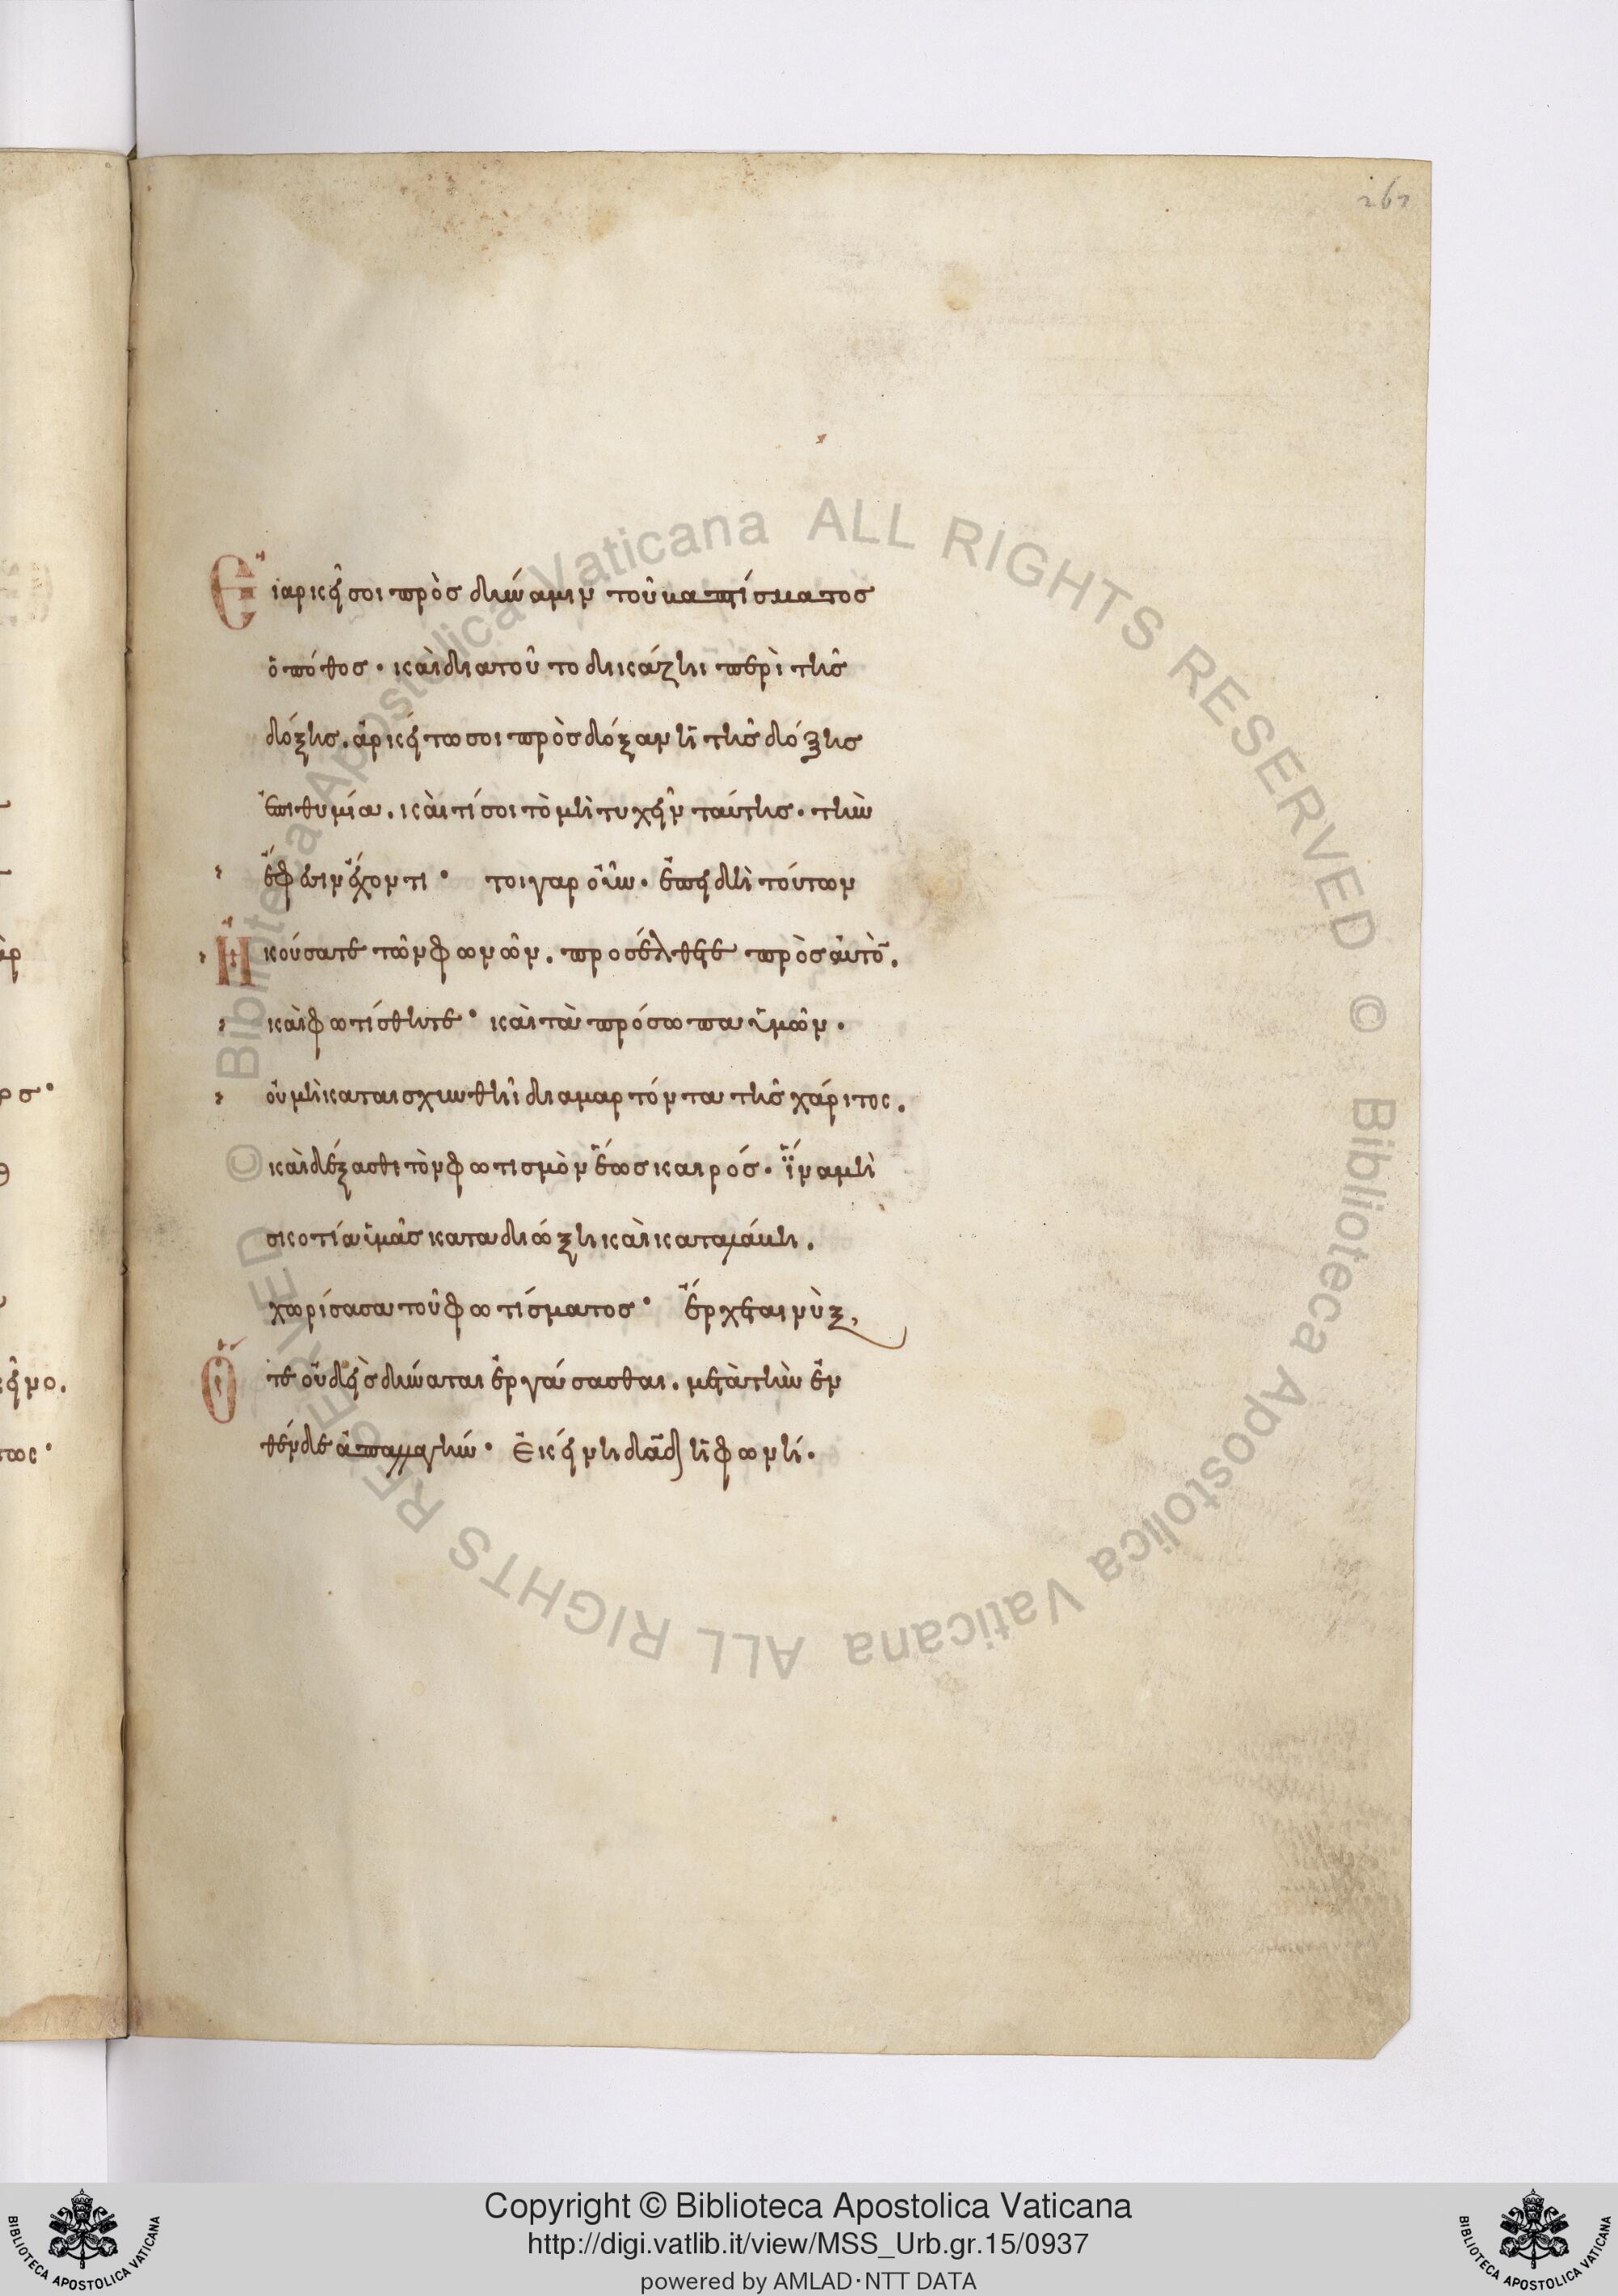 267
Εἰ ἀρκεῖ σοι πρὸς δύναμιν τοῦ βαπτίσματος
ὁ πόθος· καὶ διατοῦτο δικάζηι περὶ τῆς
δόξης. ἀρκείτω σοι πρὸς δόξαν ἡ τῆς δόξης
ἐπιθυμία. καὶ τί σοι τὸ μὴ τυχεῖν ταύτης. τὴν
ἔφεσιν ἔχοντι· τοιγαροῦν. ἐπειδὴ τούτων
ἠκούσατε τῶν φωνῶν. προσέλθετε πρὸς αὐτὸ̄.
καὶ φωτίσθητε· καὶ τὰ πρόσωπα ὑμῶν.
οὐ μὴ καταισχυνθῆι διαμαρτόντα τῆς χάριτος.
καὶ δέξασθε τὸν φωτισμὸν ἕως καιρός. ἵνα μὴ
σκοτία ὑμᾶς καταδιώξη καὶ καταλάβη.
χωρίσασα τοῦ φωτίσματος· ἔρχεται νὺξ,
ὅτε οὐδεὶς δύναται ἐργάσασθαι. μετὰ τὴν ἐν
θένδε ἀπαλλαγήν· ἐκείνη δα̅δ ἡ φωνή.
Copyright © Biblioteca Apostolica Vaticana
http://digi.vatlib.it/view/MSS_Urb.gr.15/0937
powered by AMLAD·NTT DATA
BIBLIOTECA APOSTOLICA VATICANA
BIBLIOTECA APOSTOLICA VATICANA
© Biblioteca Apostolica Vaticana ALL RIGHTS RESERVED
© Biblioteca Apostolica Vaticana ALL RIGHTS RESERVED